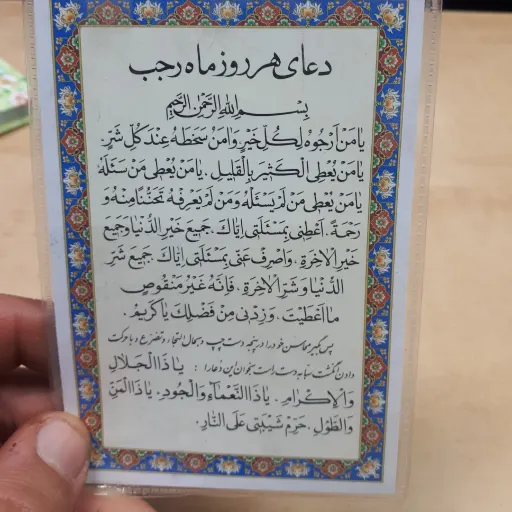 دعای هر روز ماه رجب
بِسْمِ اللهِ الرَّحْمٰنِ الرَّحیمِ
یا مَنْ اَرْجُوهُ لِکُلِّ خَیْرٍ وَامَنُ سَخَطَهُ عِنْدَ کُلِّ شَرٍّ
یا مَنْ یُعْطِی الْکَثیرَ بِالْقَلیلِ. یا مَنْ یُعْطی مَنْ سَئَلَهُ
یا مَنْ یُعْطی مَنْ لَمْ یَسْئَلْهُ وَمَنْ لَمْ یَعْرِفْهُ تَحَنُّنًا مِنْهُ وَ
رَحْمَةً. اَعْطِنی بِمَسْئَلَتی اِیّاکَ. جَمیعَ خَیْرِ الدُّنْیا وَجَمیعَ
خَیْرِ الْاخِرَةِ. وَاصْرِفْ عَنّی بِمَسْئَلَتی اِیّاکَ. جَمیعَ شَرِّ
الدُّنْیا وَ شَرِّ الْاخِرَةِ. فَاِنَّهُ غَیْرُ مَنْقُوصٍ
ما اَعْطَیْتَ. وَزِدْنی مِنْ فَضْلِکَ یا کَریمُ.
پس بگیر محاسن خود را در پنجه دست چپ و بحال التجاء و تضرع و با حرکت
دادن انگشت سبابه دست راست بخوان این دعا را : یا ذَا الْجَلالِ
وَالْاِکْرامِ. یا ذَا النَّعْماءِ وَالْجُودِ. یا ذَا الْمَنِّ
وَالطَّوْلِ. حَرِّمْ شَیْبَتی عَلَی النّارِ.